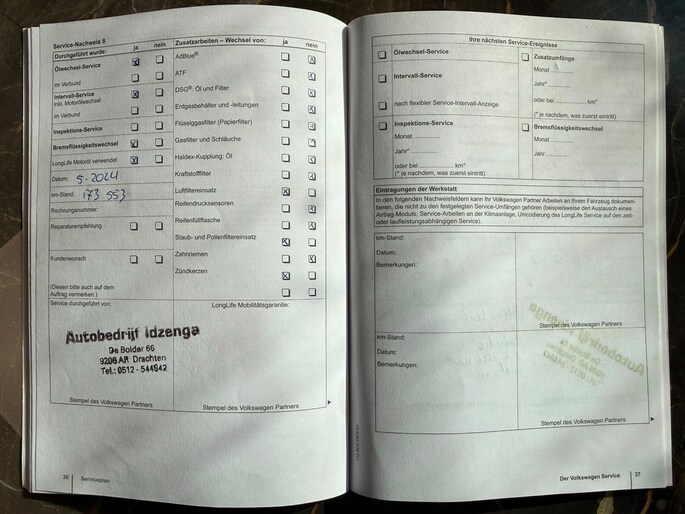 Service-Nachweis 8
Durchgeführt wurde: ja nein
Ölwechsel-Service
im Verbund
Intervall-Service
inkl. Motorölwechsel
im Verbund
Inspektions-Service
Bremsflüssigkeitswechsel
LongLife Motoröl verwendet
Datum: 5-2024
km-Stand: 173 553
Rechnungsnummer:
Reparaturempfehlung
Kundenwunsch
(Diesen bitte auch auf dem
Auftrag vermerken.)
Service durchgeführt von:
Autobedrijf Idzenga
De Bolder 66
9206 AR Drachten
Tel.: 0512 - 544842
Stempel des Volkswagen Partners
Zusatzarbeiten – Wechsel von: ja nein
AdBlue®
ATF
DSG®: Öl und Filter
Erdgasbehälter und -leitungen
Flüssiggasfilter (Papierfilter)
Gasfilter und Schläuche
Haldex-Kupplung: Öl
Kraftstofffilter
Luftfiltereinsatz
Reifendrucksensoren
Reifenfüllflasche
Staub- und Pollenfiltereinsatz
Zahnriemen
Zündkerzen
LongLife Mobilitätsgarantie:
Stempel des Volkswagen Partners
36 Serviceplan
Ihre nächsten Service-Ereignisse
Ölwechsel-Service
Intervall-Service
nach flexibler Service-Intervall-Anzeige
Inspektions-Service
Monat
Jahr*
oder bei km*
(* je nachdem, was zuerst eintritt)
Zusatzumfänge
Monat
Jahr*
oder bei km*
(* je nachdem, was zuerst eintritt)
Bremsflüssigkeitswechsel
Monat
Jahr
Eintragungen der Werkstatt
In den folgenden Nachweisfeldern kann Ihr Volkswagen Partner Arbeiten an Ihrem Fahrzeug dokumen-
tieren, die nicht zu den festgelegten Service-Umfängen gehören (beispielsweise den Austausch eines
Airbag-Moduls, Service-Arbeiten an der Klimaanlage, Umcodierung des LongLife Service auf den zeit-
oder laufleistungsabhängigen Service).
km-Stand:
Datum:
Bemerkungen:
Stempel des Volkswagen Partners
km-Stand:
Datum:
Bemerkungen:
Stempel des Volkswagen Partners
Der Volkswagen Service 37